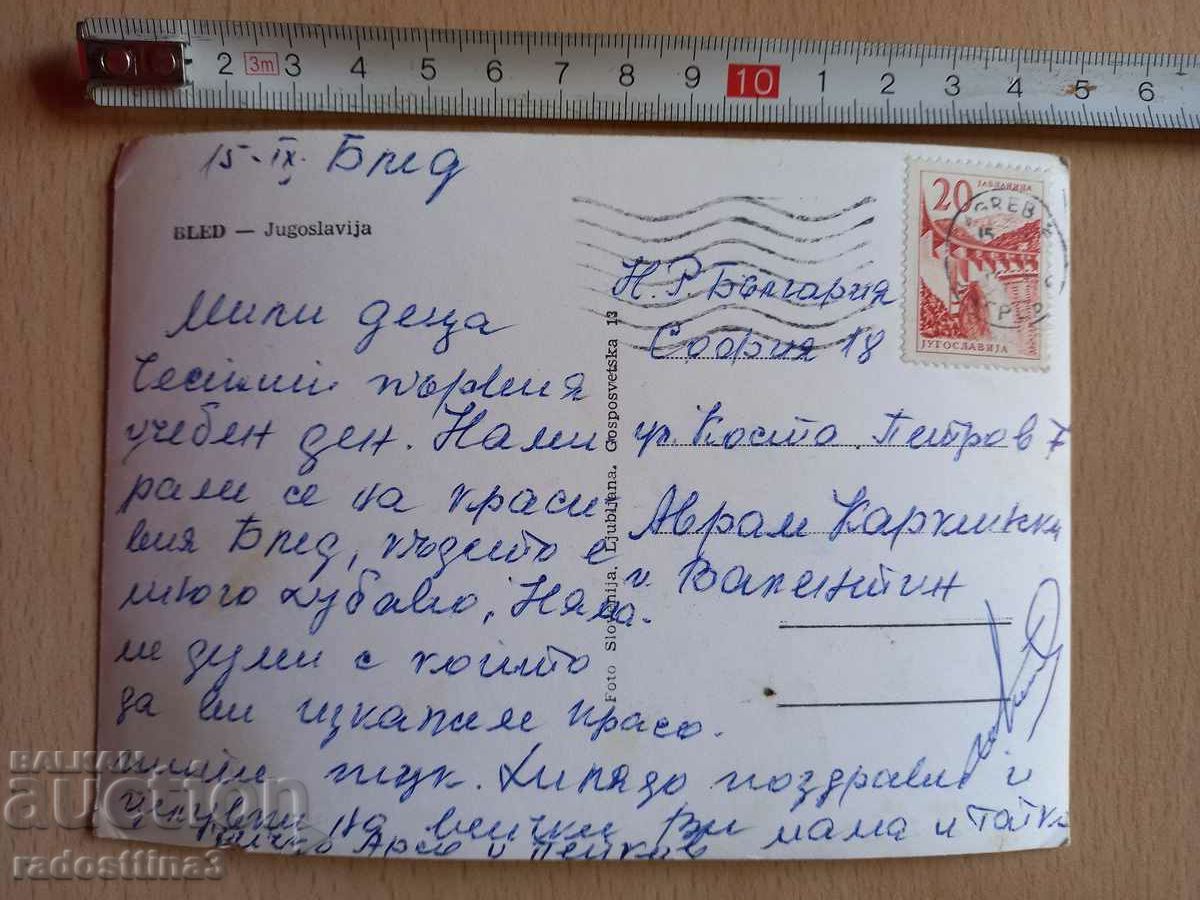 2 3m 3 4 5 6 7 8 9 10 1 2 3 4 5 6
15-IX. Блед
BLED — Jugoslavija
20
ЈАБЛАНИЦА
ЈУГОСЛАВИЈА
Н.Р България
София 18
ул. Коста Петров 7
Аврам
и Валентин
Foto Slovenija, Ljubljana, Gosposvetska 13
Мили деца
Честит първия
учебен ден. Нами
рами се на краси
вия Блед, където е
много хубаво, Няма
ме думи с които
да ви изкапим красо.
тите тук. Хиляди поздрави и
целувки на всички Ви мама и татко
BALKAN
auction
radosttina3